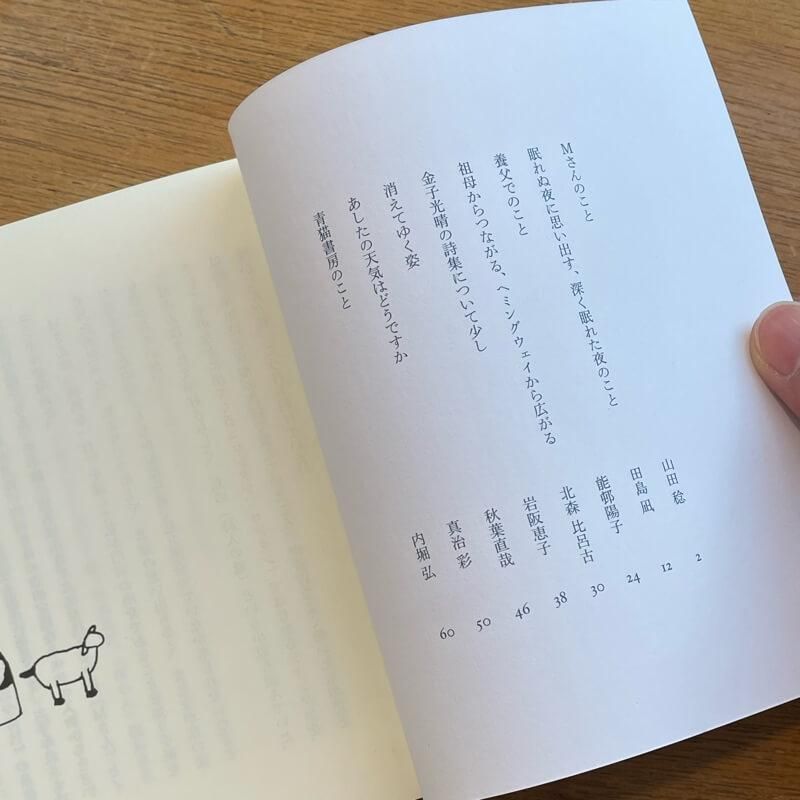 Mさんのこと 山田 稔 2
眠れぬ夜に思い出す、深く眠れた夜のこと 田島 凪 12
養父でのこと 能邨陽子 24
祖母からつながる、ヘミングウェイから広がる 北森 比呂古 30
金子光晴の詩集について少し 岩阪恵子 38
消えてゆく姿 秋葉直哉 46
あしたの天気はどうですか 真治 彩 50
青猫書房のこと 内堀 弘 60